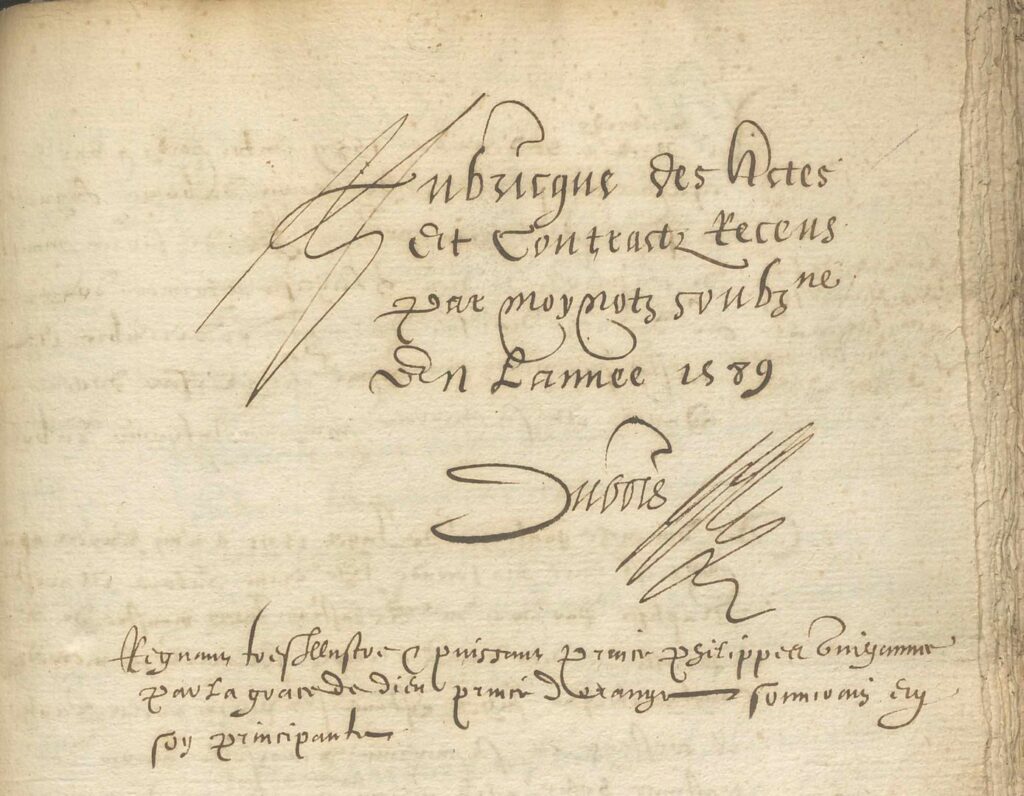 Rubricque des Actes
Et Contractz Receus
par moy Notz soubzne
En Lannee 1589
Dubois
Regnant tresillustre & puissant prince philippes Guigaume
par la grace de dieu prince dorange souverain en
soy principaute